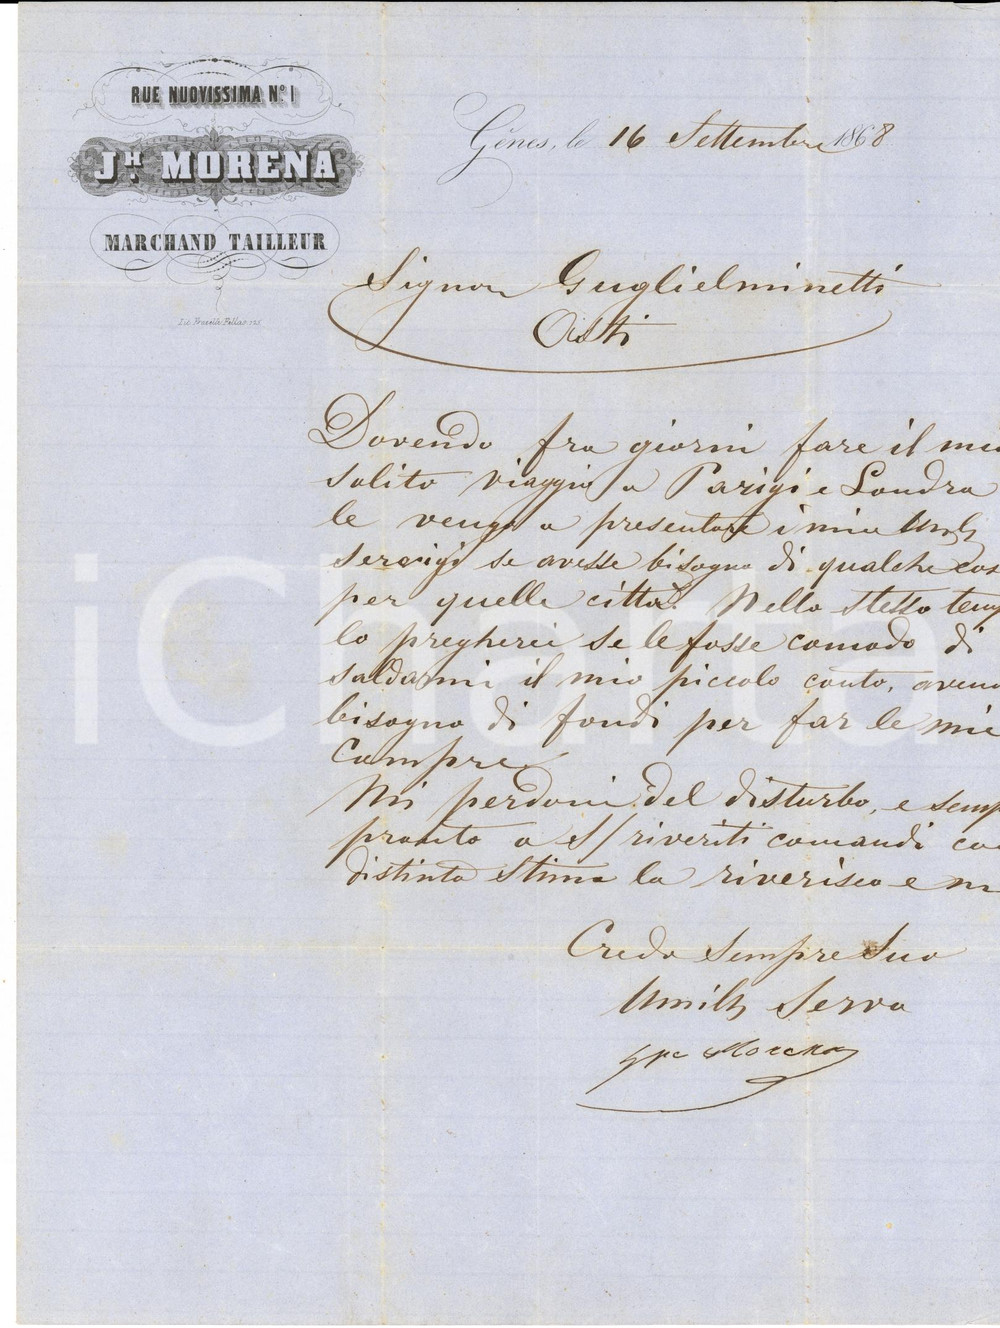 RUE NUOVISSIMA Nº 1
JH. MORENA
MARCHAND TAILLEUR
Lit. Fratelli Pellas
Gênes, le 16 Settembre 1868
Signor Guglielminetti
Asti
Dovendo fra giorni fare il mio
solito viaggio a Parigi e Londra
le vengo a presentare i miei Umili
servigi se avesse bisogno di qualche cos
per quelle città. Nello stesso temp
lo pregherei se le fosse comodo di
saldarmi il mio piccolo conto, aven
bisogno di fondi per far le mie
compre
Mi perdoni del disturbo, e semp
pronto a S/ riveriti comandi co
distinta stima la riverisco e m
Credo sempre Suo
Umile Servo
Gpe Morena
iCharta